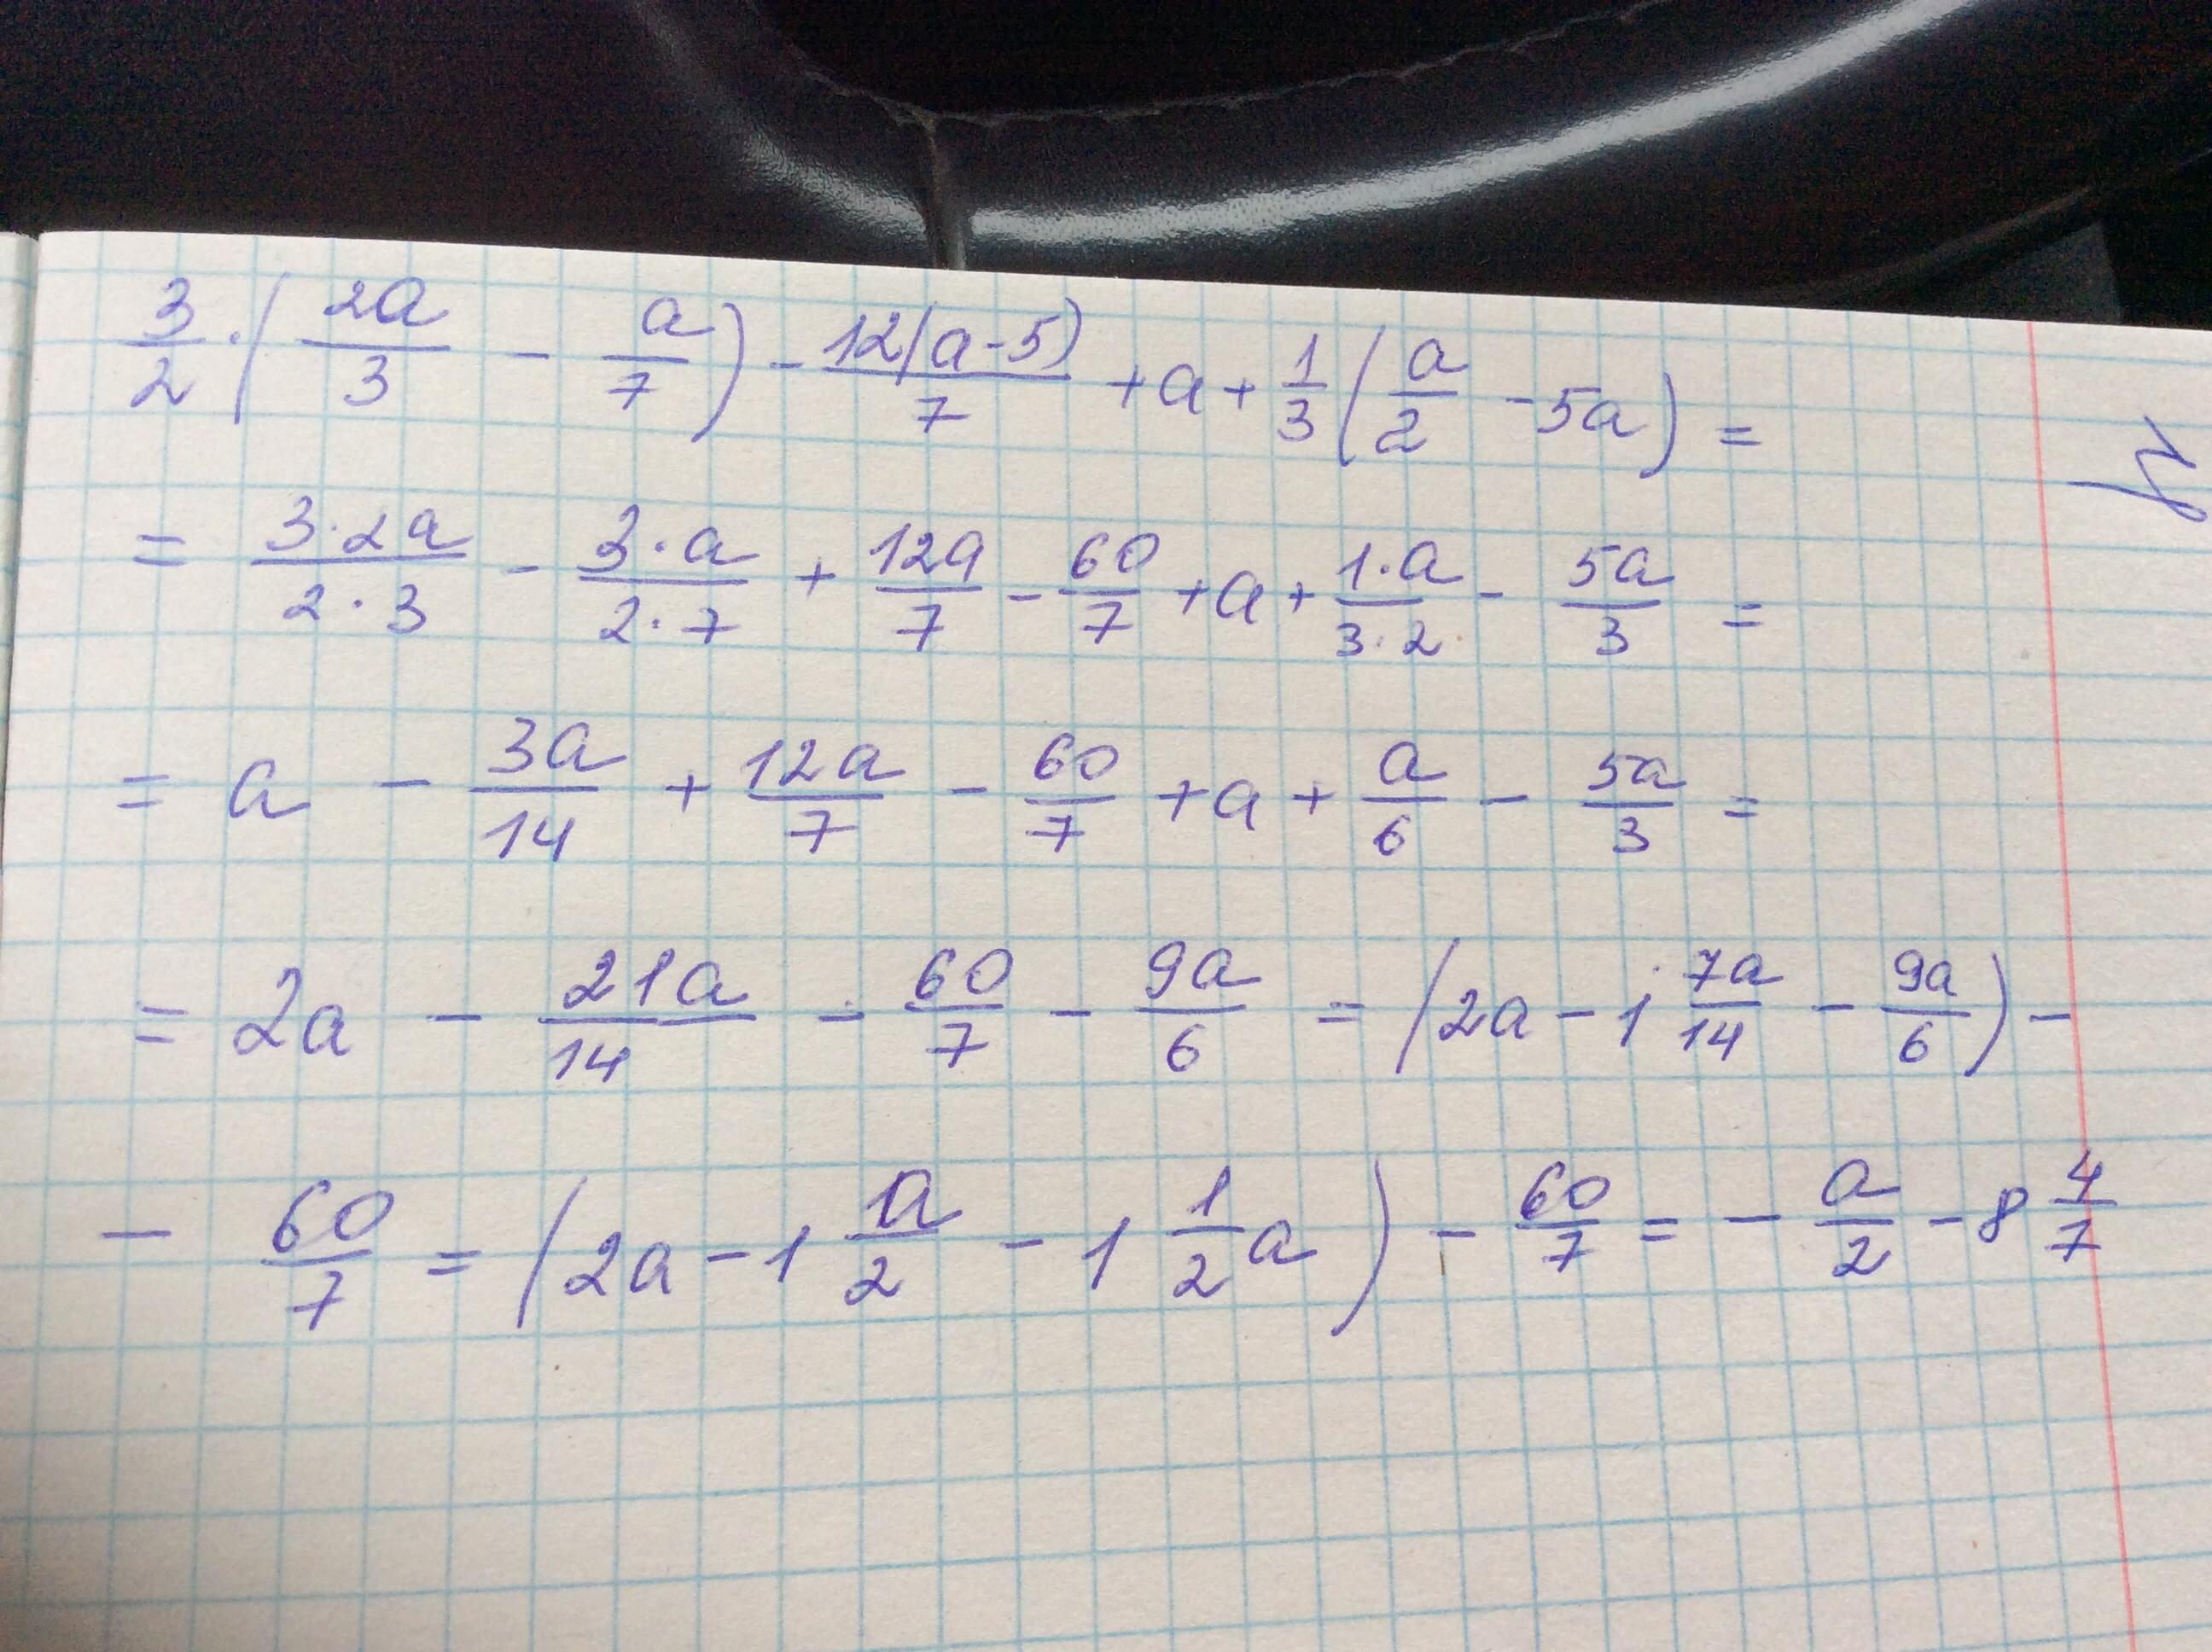 3/2 · (2a/3 - a/7) - 12(a-5)/7 + a + 1/3 (a/2 - 5a) =
= 3·2a/2·3 - 3·a/2·7 + 12a/7 - 60/7 + a + 1·a/3·2 - 5a/3 =
= a - 3a/14 + 12a/7 - 60/7 + a + a/6 - 5a/3 =
= 2a - 21a/14 - 60/7 - 9a/6 = (2a - 1 7a/14 - 9a/6) -
- 60/7 = (2a - 1 a/2 - 1 1/2 a) - 60/7 = - a/2 - 8 4/7